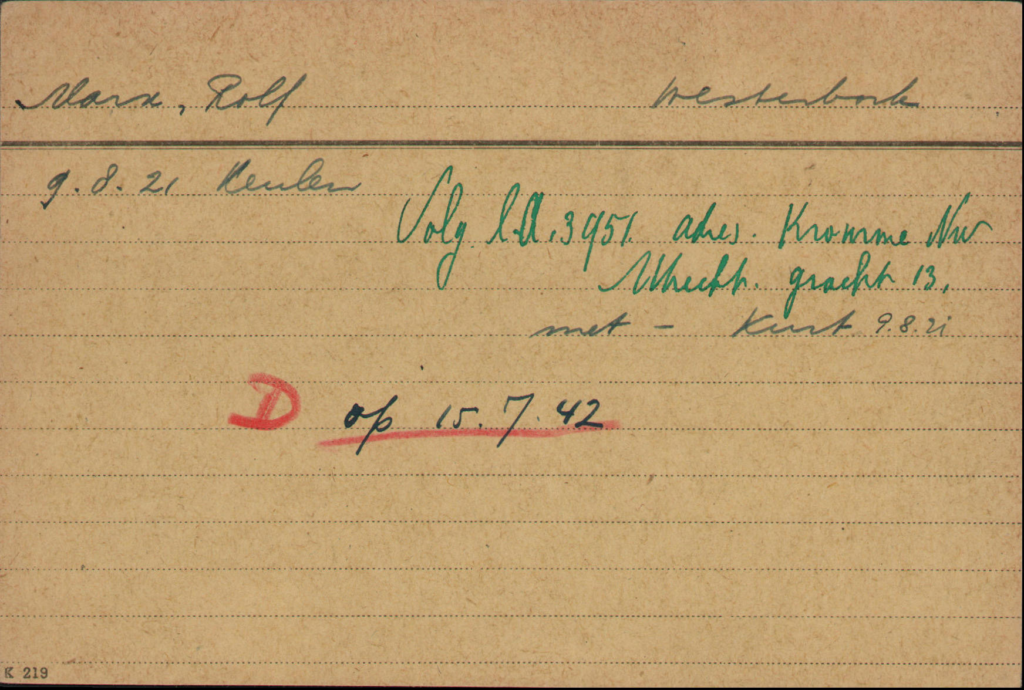 Marx, Rolf Westerbork
9.8.21 Keulen
Volg l.A. 3951. adres. Kromme Nw
Utrecht. gracht 13.
met - Kurt 9.8.21
D op 15.7.42
K 219